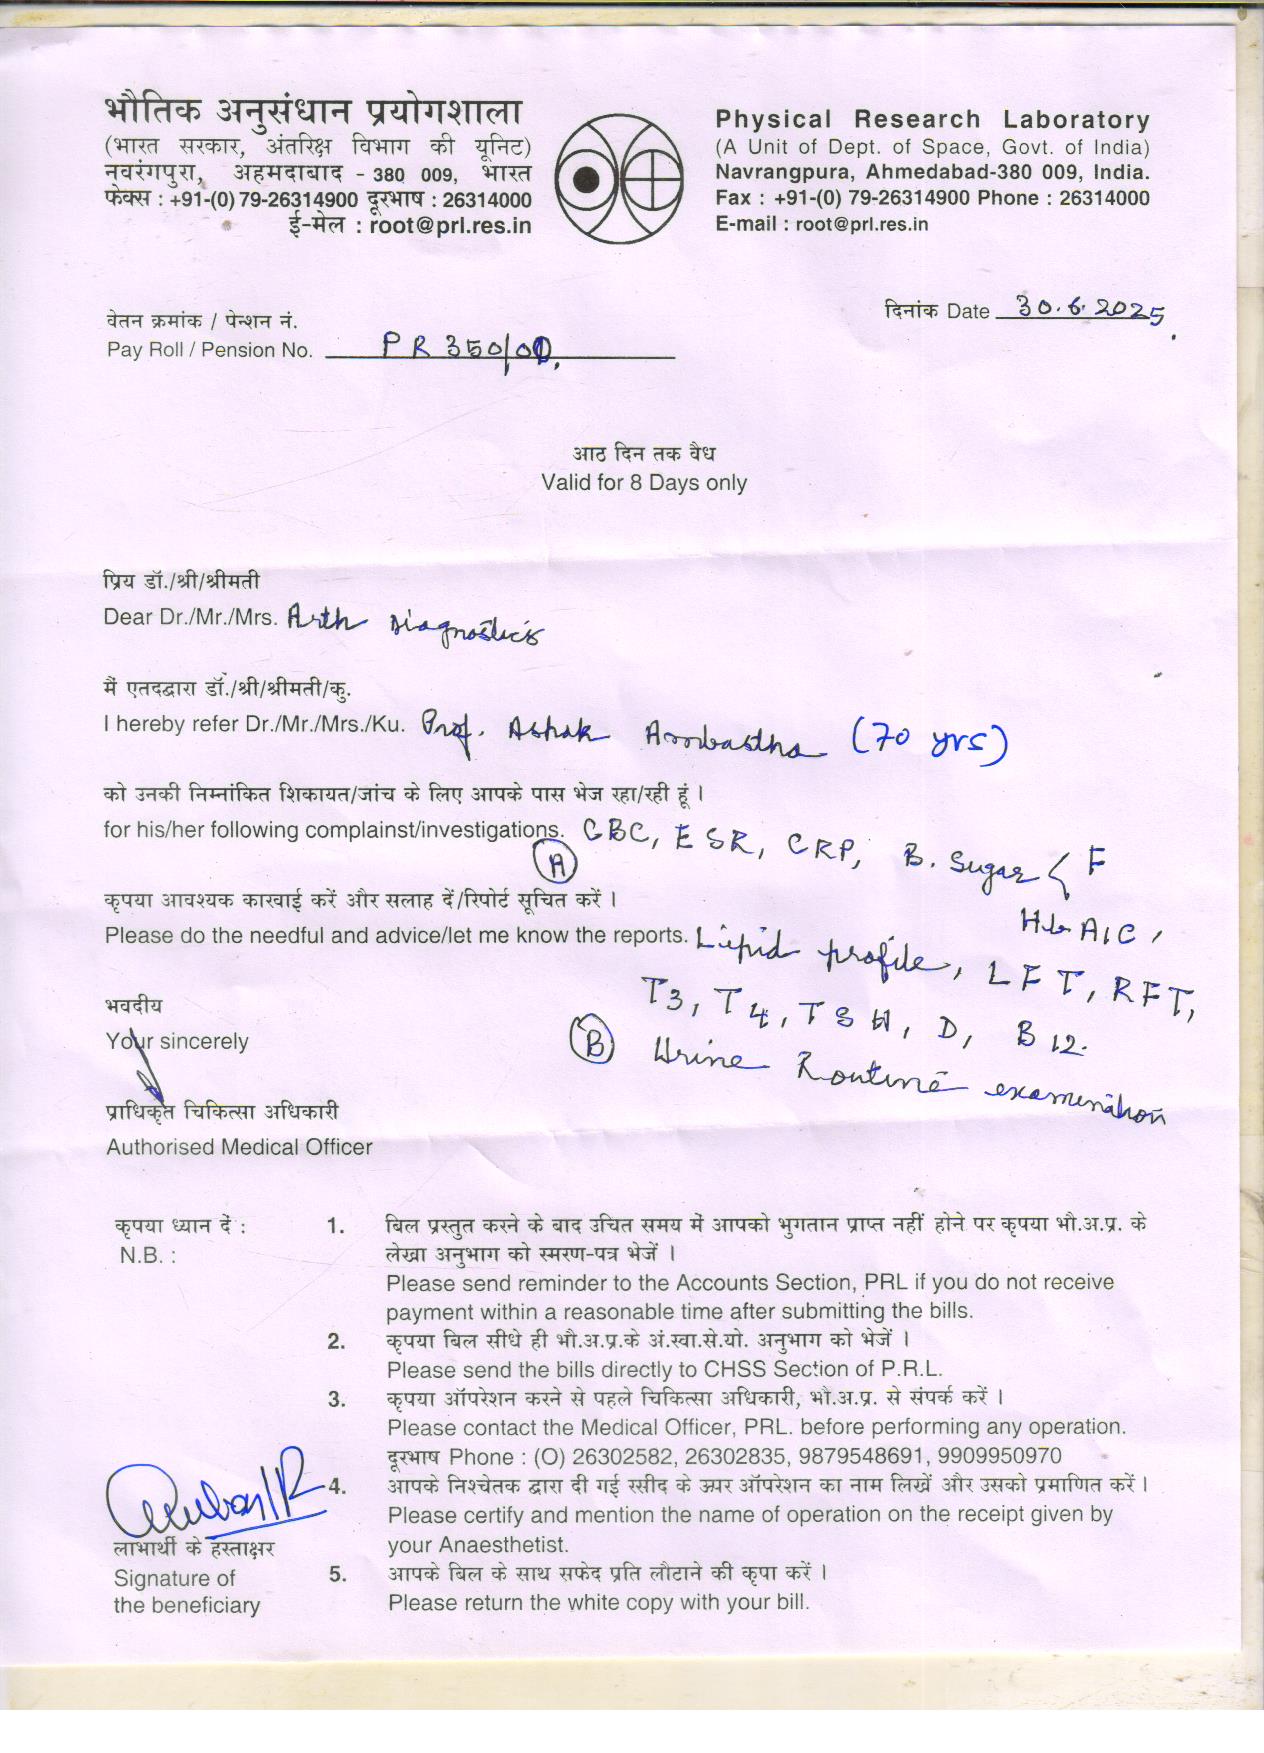 भौतिक अनुसंधान प्रयोगशाला
(भारत सरकार, अंतरिक्ष विभाग की यूनिट)
नवरंगपुरा, अहमदाबाद - 380 009, भारत
फेक्स : +91-(0) 79-26314900 दूरभाष : 26314000
ई-मेल : root@prl.res.in
Physical Research Laboratory
(A Unit of Dept. of Space, Govt. of India)
Navrangpura, Ahmedabad-380 009, India.
Fax : +91-(0) 79-26314900 Phone : 26314000
E-mail : root@prl.res.in
दिनांक Date 30.6.2025
वेतन क्रमांक / पेन्शन नं.
Pay Roll / Pension No. PR 350/01
आठ दिन तक वैध
Valid for 8 Days only
प्रिय डॉ./श्री/श्रीमती
Dear Dr./Mr./Mrs. Arth Diagnostics
मैं एतदद्वारा डॉ./श्री/श्रीमती/कु.
I hereby refer Dr./Mr./Mrs./Ku. Prof. Ashok Ambastha (70 yrs)
को उनकी निम्नांकित शिकायत/जांच के लिए आपके पास भेज रहा/रही हूं ।
for his/her following complainst/investigations. CBC, ESR, CRP, B. Sugar < F
(A)
कृपया आवश्यक कारवाई करें और सलाह दें/रिपोर्ट सूचित करें ।
HbA1C,
Please do the needful and advice/let me know the reports. Lipid profile, LFT, RFT,
T3, T4, TSH, D, B12.
भवदीय
Your sincerely
(B) Urine Routine examination
प्राधिकृत चिकित्सा अधिकारी
Authorised Medical Officer
कृपया ध्यान दें :
N.B. :
1. बिल प्रस्तुत करने के बाद उचित समय में आपको भुगतान प्राप्त नहीं होने पर कृपया भौ.अ.प्र. के
लेखा अनुभाग को स्मरण-पत्र भेजें ।
Please send reminder to the Accounts Section, PRL if you do not receive
payment within a reasonable time after submitting the bills.
2. कृपया बिल सीधे ही भौ.अ.प्र.के अं.स्वा.से.यो. अनुभाग को भेजें ।
Please send the bills directly to CHSS Section of P.R.L.
3. कृपया ऑपरेशन करने से पहले चिकित्सा अधिकारी, भौ.अ.प्र. से संपर्क करें ।
Please contact the Medical Officer, PRL. before performing any operation.
दूरभाष Phone : (O) 26302582, 26302835, 9879548691, 9909950970
4. आपके निश्चेतक द्वारा दी गई रसीद के ऊपर ऑपरेशन का नाम लिखें और उसको प्रमाणित करें ।
Please certify and mention the name of operation on the receipt given by
your Anaesthetist.
5. आपके बिल के साथ सफेद प्रति लौटाने की कृपा करें ।
Please return the white copy with your bill.
लाभार्थी के हस्ताक्षर
Signature of
the beneficiary